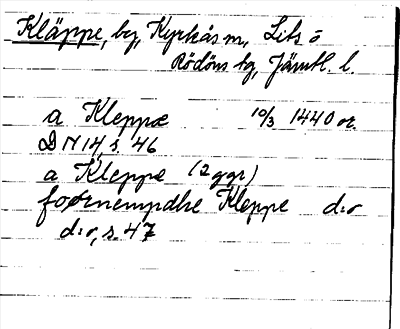 Kläppe, by, Kyrkås sn, Lits o
Rödöns tg, Jämtl. l.
a Kleppæ 10/3 1440 or.
DN 14, s. 46
a Kleppe (2 ggr)
foornempdhe Kleppe d:o
d:o, s. 47